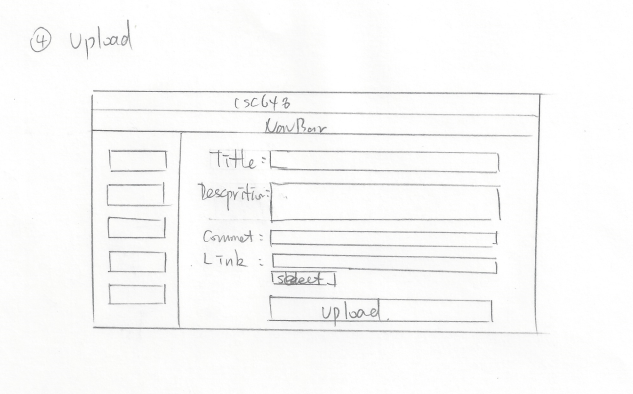 ④ Upload
CSC648
NavBar
Title:
Descpritiun:
Commet:
Link:
select
upload